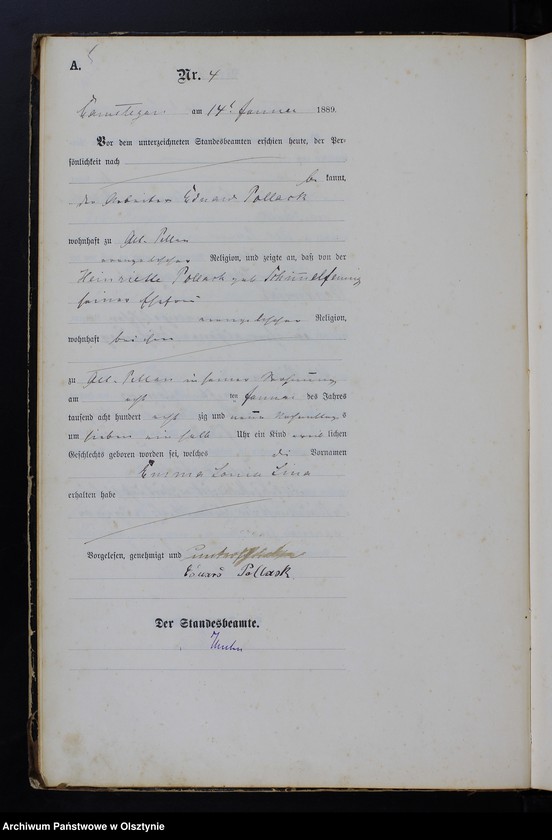 A.
Nr. 4
am 14t Januar 1889.
Vor dem unterzeichneten Standesbeamten erschien heute, der Per-
sönlichkeit nach
be kannt,
der Arbeiter Eduard Pollack
wohnhaft zu Alt-Pillau
evangelischer Religion, und zeigte an, daß von der
Henriette Pollack geb.
seiner Ehefrau
evangelischer Religion,
wohnhaft bei ihm
zu Alt-Pillau in seiner Wohnung
am acht ten Januar des Jahres
tausend acht hundert acht zig und neun Nachmittags
um sieben ein halb Uhr ein Kind weib lichen
Geschlechts geboren worden sei, welches die Vornamen
Lina
erhalten habe
Vorgelesen, genehmigt und unterschrieben
Eduard Pollack
Der Standesbeamte.
Archiwum Państwowe w Olsztynie